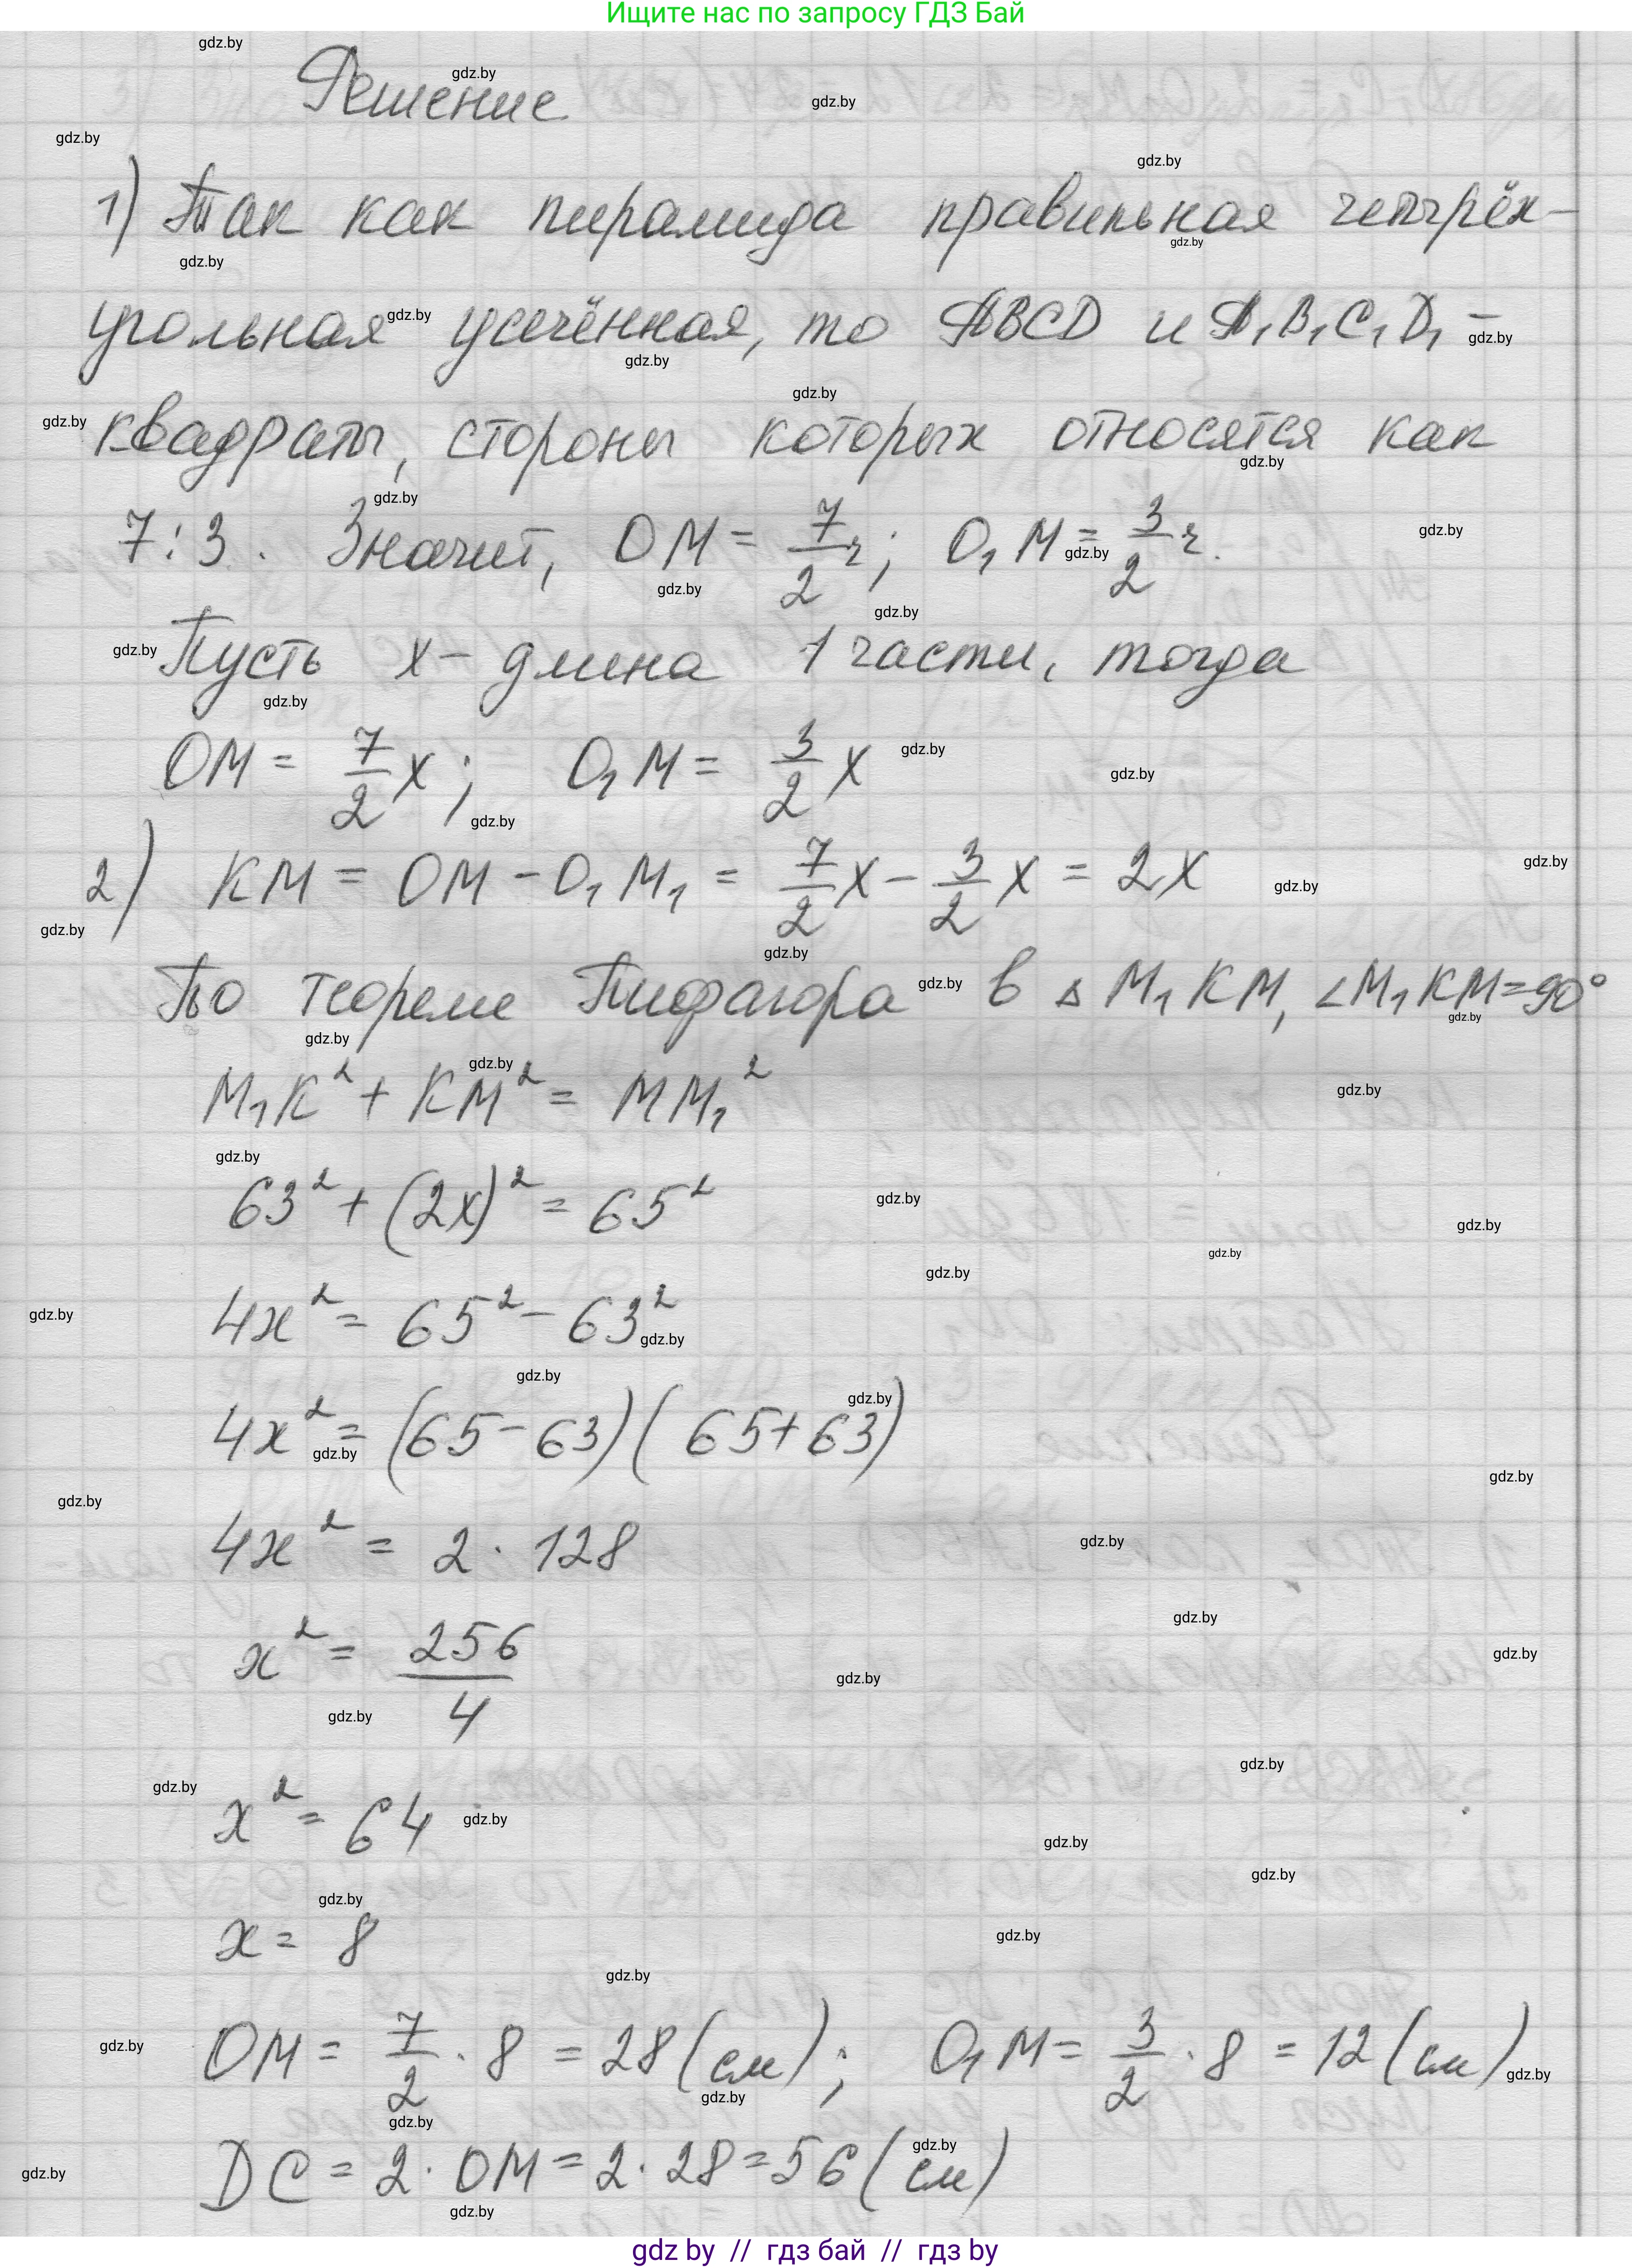 Ищите нас по запросу ГДЗ Бай
Решение
1) Так как пирамида правильная четырёх-
угольная усечённая, то ABCD и A₁B₁C₁D₁ –
квадраты, стороны которых относятся как
7:3. Значит, OM = 7/2 r; O₁M = 3/2 r.
Пусть x – длина 1 части, тогда
OM = 7/2 x; O₁M = 3/2 x
2) KM = OM - O₁M₁ = 7/2 x - 3/2 x = 2x
По теореме Пифагора в △ M₁KM, ∠M₁KM=90°
M₁K² + KM² = MM₁²
63² + (2x)² = 65²
4x² = 65² - 63²
4x² = (65-63)(65+63)
4x² = 2 · 128
x² = 256/4
x² = 64
x = 8
OM = 7/2 · 8 = 28 (см); O₁M = 3/2 · 8 = 12 (см)
DC = 2 · OM = 2 · 28 = 56 (см)
gdz by // гдз бай // гдз by